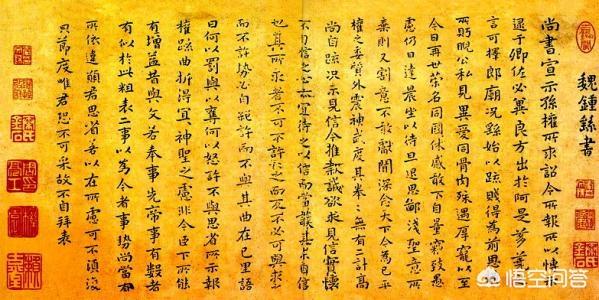 魏鍾繇書
尚書宣示孫權所求詔令所報所以博示
逮于卿佐必冀良方出於阿是芻蕘之
言可擇郎廟況繇始以疏賤得為前恩橫
所盼睨公私見異愛同骨肉殊遇厚寵以至
今日再世榮名同國休慼敢不自量竊致愚
慮仍日達晨坐以待旦退思鄙淺聖意所
棄則又割意不敢獻聞深念天下今為已平
權之委質外震神武度其拳拳無有二計高
尚自疏況未見信今推款誠欲求見信實懷
不自信之心亦宜待之以信而當護其未自信
也其所求者不可不許許之而反不必可與求之
而不許勢必自絕許而不與其曲在己里語
曰何以罰與以奪何以怒許不與思省所示報
權疏曲折得宜神聖之慮非今臣下所能
有增益昔與文若奉事先帝事有數者
有似於此粗表二事以為今者事勢尚當有
所依違願君思省若以在所慮可不須復
節度唯君恐不可采故不自拜表
悟空问答